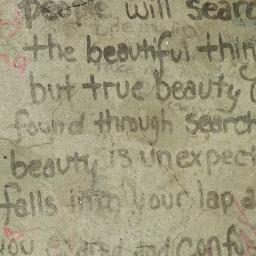 people will searc
the beautiful thin
but true beauty
found through search
beauty is unexpect
falls into your lap a
you and confu